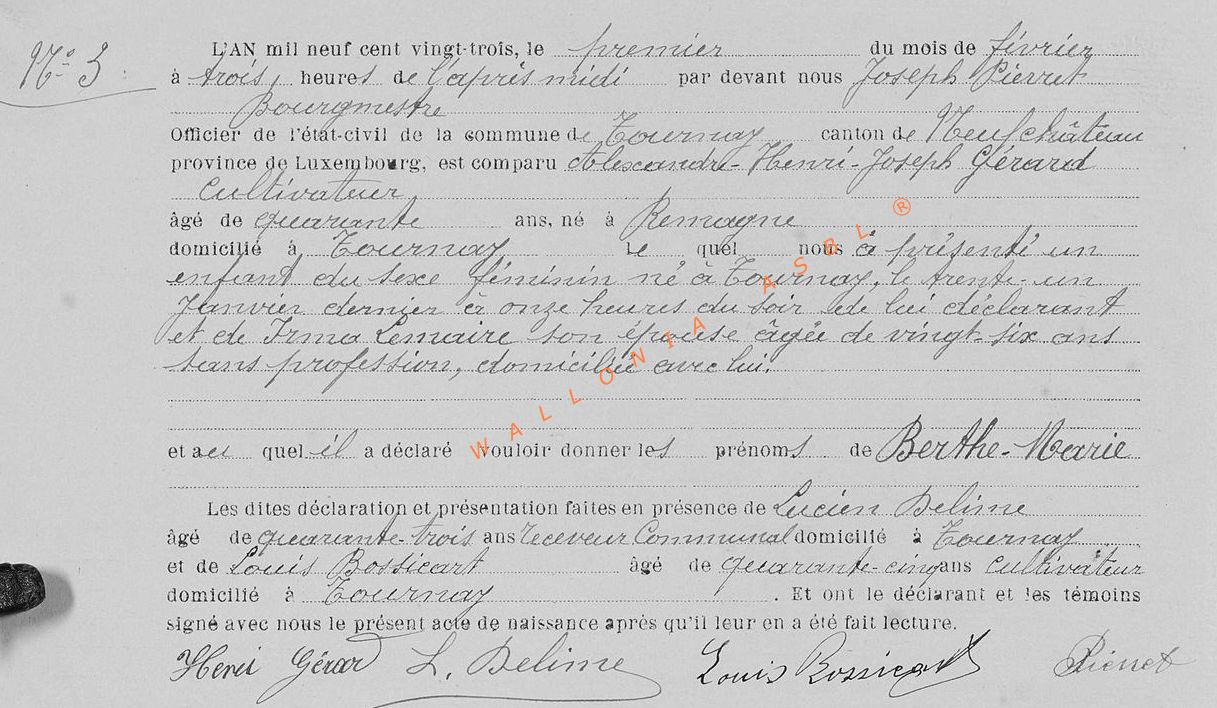 N° 3
L'AN mil neuf cent vingt-trois, le premier du mois de février
à trois, heures de l'après midi par devant nous Joseph Pierret
Bourgmestre
Officier de l'état-civil de la commune de Tournay canton de Neufchâteau
province de Luxembourg, est comparu Alexandre-Henri-Joseph Gérard
Cultivateur
âgé de quarante ans, né à Remagne
domicilié à Tournay le quel nous a présenté un
enfant du sexe féminin né à Tournay, le trente-un
Janvier dernier à onze heures du soir de lui déclarant
et de Irma Lemaire son épouse âgée de vingt-six ans
sans profession, domiciliée avec lui.
et au quel il a déclaré vouloir donner les prénoms de Berthe-Marie
Les dites déclaration et présentation faites en présence de Lucien Delime
âgé de quarante-trois ans receveur Communal domicilié à Tournay
et de Louis Bossicart âgé de quarante-cinq ans Cultivateur
domicilié à Tournay. Et ont le déclarant et les témoins
signé avec nous le présent acte de naissance après qu'il leur en a été fait lecture.
Henri Gérard L. Delime Louis Bossicart Pierret
WALLONIA ASBL ®